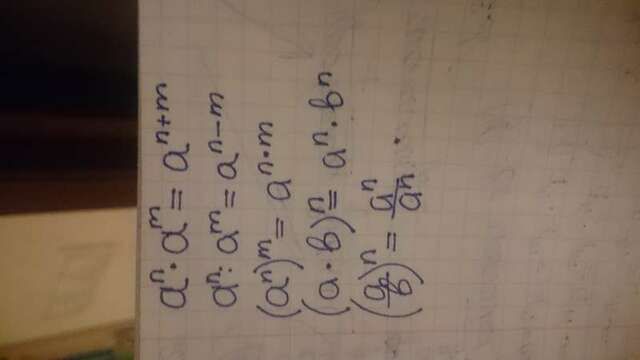 aⁿ · aᵐ = aⁿ⁺ᵐ
aⁿ : aᵐ = aⁿ⁻ᵐ
(aⁿ)ᵐ = aⁿ·ᵐ
(a · b)ⁿ = aⁿ · bⁿ
(a/b)ⁿ = aⁿ/aⁿ